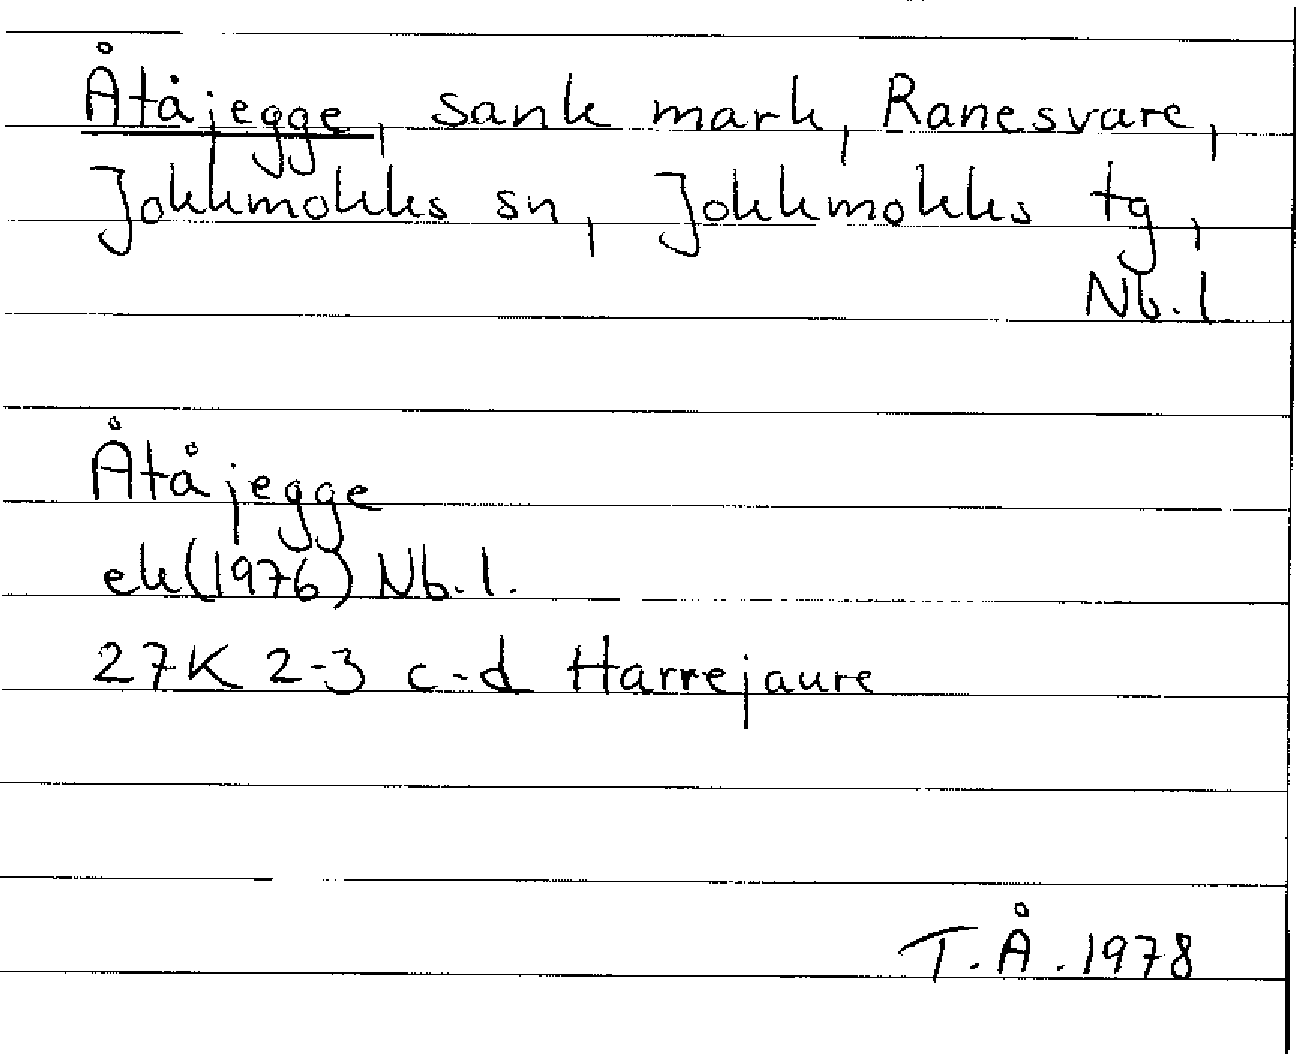 Åtåjegge, sank mark, Ranesvare,
Jokkmokks sn, Jokkmokks tg,
Nb. l
Åtåjegge
ek (1976) Nb. l.
27K 2-3 c-d Harrejaure
T. Å. 1978